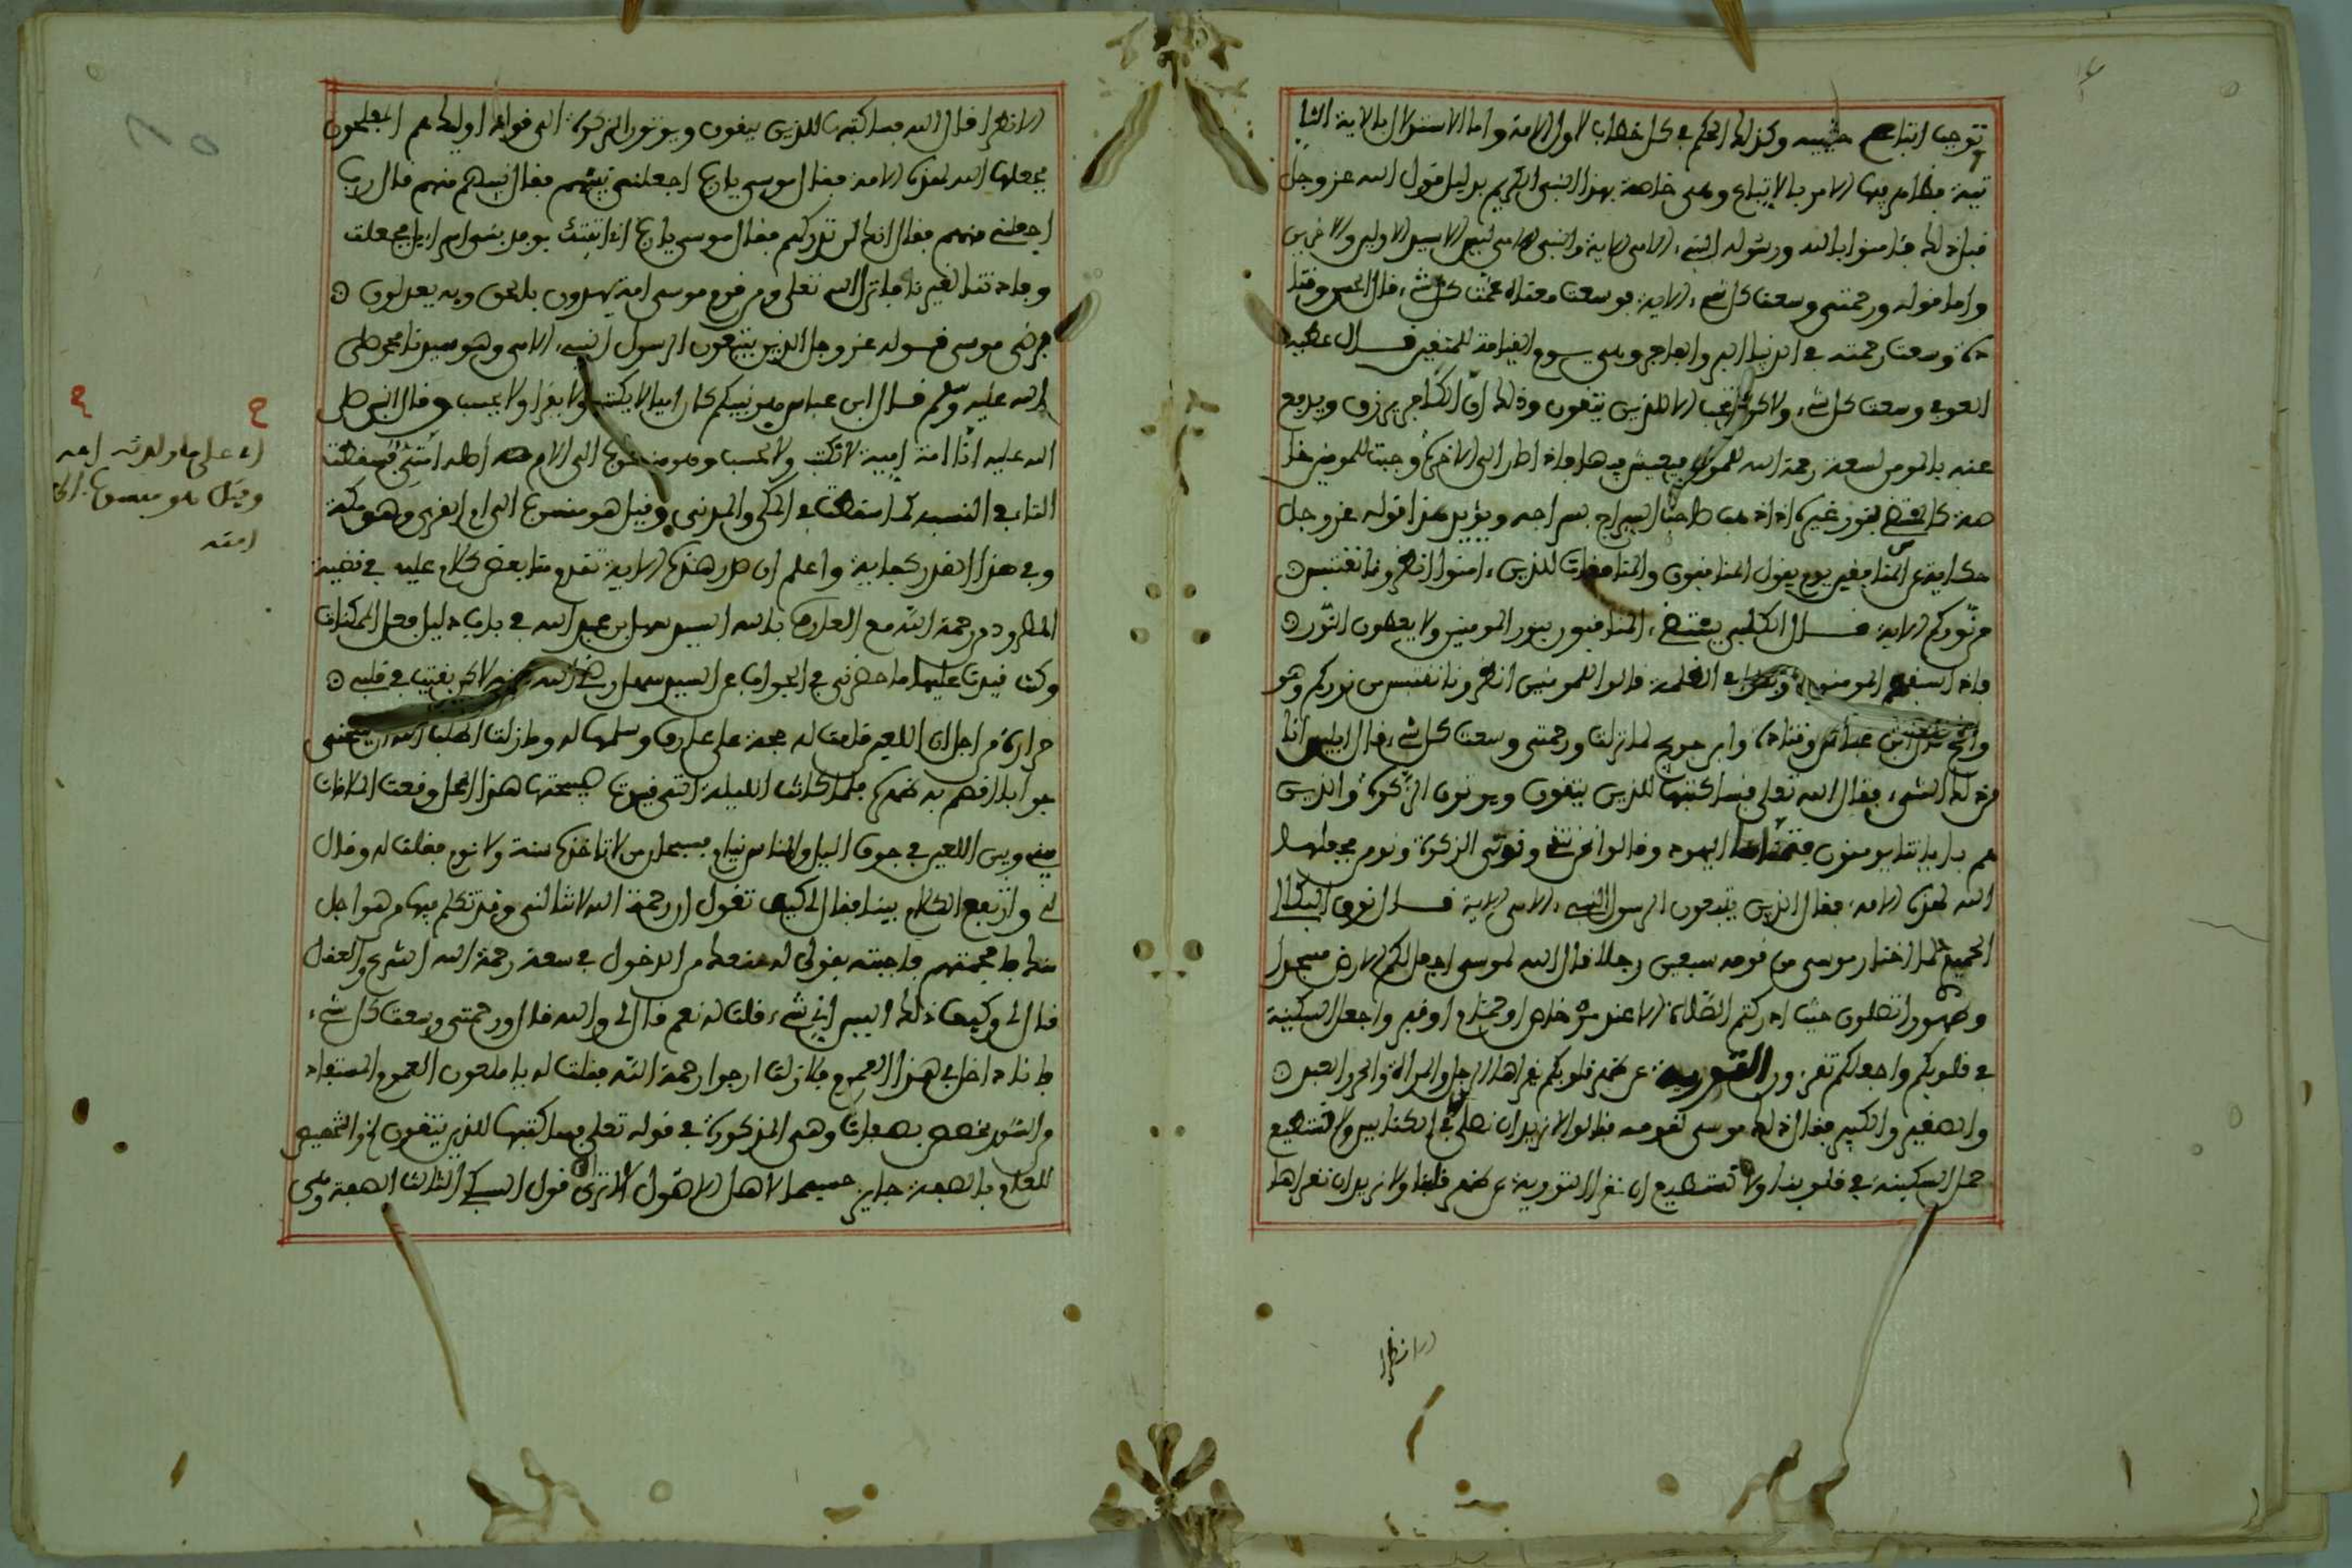 توجب اتباعهم حبيبه وكذلك الحكم في كل خطاب لاول الامة واما الاستدلال بالاية الثا
نية فظاهر فيها الامر بالاتباع وهي خاصة بهذا النبي الكريم بدليل قول الله عز وجل
قبل ذلك فئامنوا بالله ورسوله النبي الامي الاية والنبي الامي سيد الاولين والاخرين
واما قوله ورحمتي وسعت كل شيء الاية فوسعت معناه عمت كل شيء قال الحسن وقتا
دة وسعت رحمته في الدنيا البر والفاجر وهي يوم القيامة للمتقين قال عطية
العوفي وسعت كل شيء ولاكن لا تجب الا للذين يتقون وذلك ان الكافر يرزق ويدفع
عنه بالمومن لسعة رحمة الله للمومن فيعيش فيها فاذا صار الى الاخرة وجبت للمومن خا
صة كالمستضيء بنور غيره اذا ذهب صاحب السراج بسراجه ويؤيد هذا قوله عز وجل
حكاية عن المنافقين يوم يقول المنافقون والمنافقات للذين ءامنوا انظرونا نقتبس
من نوركم الاية قال الكلبي يستضيء المنافقون بنور المومنين ولا يعطون النور
فاذا سبقهم المومنون وبقوا في الظلمة قالوا للمومنين انظرونا نقتبس من نوركم وهو
ابن عباس وقتادة وابن جريج لما نزلت ورحمتي وسعت كل شيء قال ابليس انا
من ذلك الشيء فقال الله تعلى فساكتبها للذين يتقون ويوتون الزكوة والذين
هم بئاياتنا يومنون فتمناها اليهود وقالوا نحن نتقي ونوتي الزكوة ونومن فجعلها
الله لهذه الامة فقال الذين يتبعون الرسول النبي الامي الاية قال نوف البكالي
الحميري لما اختار موسى من قومه سبعين رجلا قال الله لموسى اجعل لكم الارض مسجدا
وطهورا تصلون حيث ادركتم الصلاة الا عند مرحاض او حمام او قبر واجعل السكينة
في قلوبكم واجعلكم تقرءون التورية عن ظهر قلوبكم يقراها الرجل والمراة والحر والعبد
والصغير والكبير فقال ذلك موسى لقومه فقالوا لا نريد ان نصلي الا في الكنائس ولا نستطيع
حمل السكينة في قلوبنا ولا نستطيع ان نقرا التورية عن ظهر قلوبنا ولا نريد ان نقراها
الا نظرا
الا نظرا قال الله فساكتبها للذين يتقون ويوتون الزكوة الى قوله اوليك هم المفلحون
فجعلها الله لهذه الامة فقال موسى يارب اجعلني نبيهم فقال نبيهم منهم قال رب
اجعلني منهم فقال انك لن تدركهم فقال موسى يارب اني اتيتك بوفد بني اسراءيل فجعلت
وفادتنا لغيرنا فانزل الله تعلى ومن قوم موسى امة يهدون بالحق وبه يعدلون
فرضي موسى قوله عز وجل الذين يتبعون الرسول النبي الامي وهو سيدنا محمد صلى
الله عليه وسلم قال ابن عباس هو نبيكم كان اميا لا يكتب ولا يقرا ولا يحسب وقال النبي صلى
الله عليه انا امة امية لا نكتب ولا نحسب وهو منسوب الى الام اصله امتي فسقطت
التاء في النسبة كما سقطت في المكي والمدني وقيل هو منسوب الى ام القرى وهو مكة
وفي هذا القدر كفاية واعلم ان صدر هذه الاية تقدم منا بعض كلام عليه في قضية
المطرود من رحمة الله مع العارف بالله السيد سهل بن عبد الله في بيان دليل فعل الممكنات
وكنت قيدت عليها ما حضرني في الجواب عن السيد سهل رضي الله عنه لاكن بقيت في قلبي
حرارة من اجل ان اللعين قامت له حجة على عارف وسلمها له وما زلت اطلب الله ان يمنحني
جوابا اقصم به ظهره فلما كانت الليلة التي قيدت صبيحتها هذا المحل وقعت الملاقات
بيني وبين اللعين في جوف الليل والناس نيام فسبحان من لا تاخذه سنة ولا نوم فقلت له وقال
لي وارتفع الكلام بيننا فقال لي كيف تقول ان رحمة الله لا تنالني وقد تكلم فيها من هو اجل
منك ما حجتهم فاجبته بقولي له منعك من الدخول في سعة رحمة الله الشرع والعقل
قال لي وكيف ذلك اليس اني شيء فقلت له نعم قال لي والله قال ورحمتي وسعت كل شيء
فانا داخل في هذا العموم فلا زلت ارجوا رحمة الله فقلت له يا ملعون العموم المستفاد
من السور مخصص بصفات وهي المذكورة في قوله تعلى فساكتبها للذين يتقون الخ والتخصيص
للعام بالصفة جايز حسبما لاهل الاصول الا ترى قول السبكي الثالث الصفة وهي
ح
ح
وقيل هو منسوب الى
امته